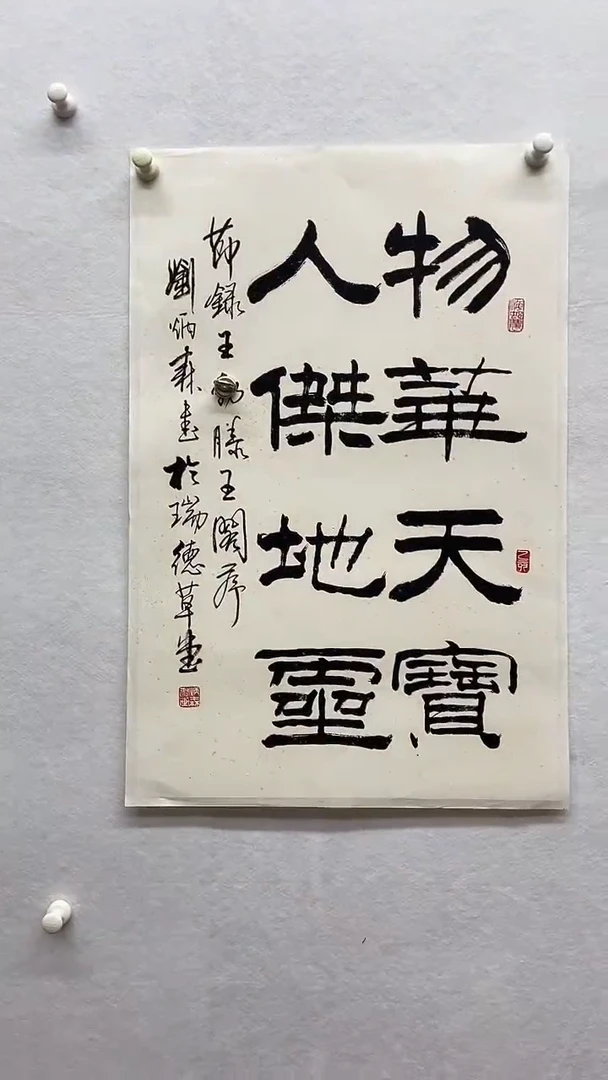 物華天寶
人傑地靈
節錄王勃滕王閣序
劉炳森書於瑞德草堂